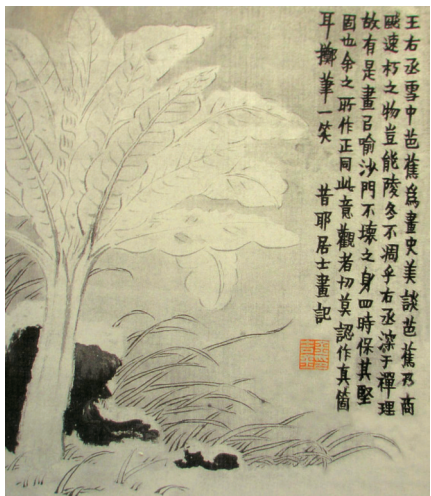 王右丞雪中芭蕉為畫史美談芭蕉乃商
飈速朽之物豈能陵冬不凋乎右丞深于禪理
故有是畫㠯喻沙門不壞之身四時保其堅
固也余之所作正同此意觀者切莫認作真箇
耳擲筆一笑 昔耶居士畫記